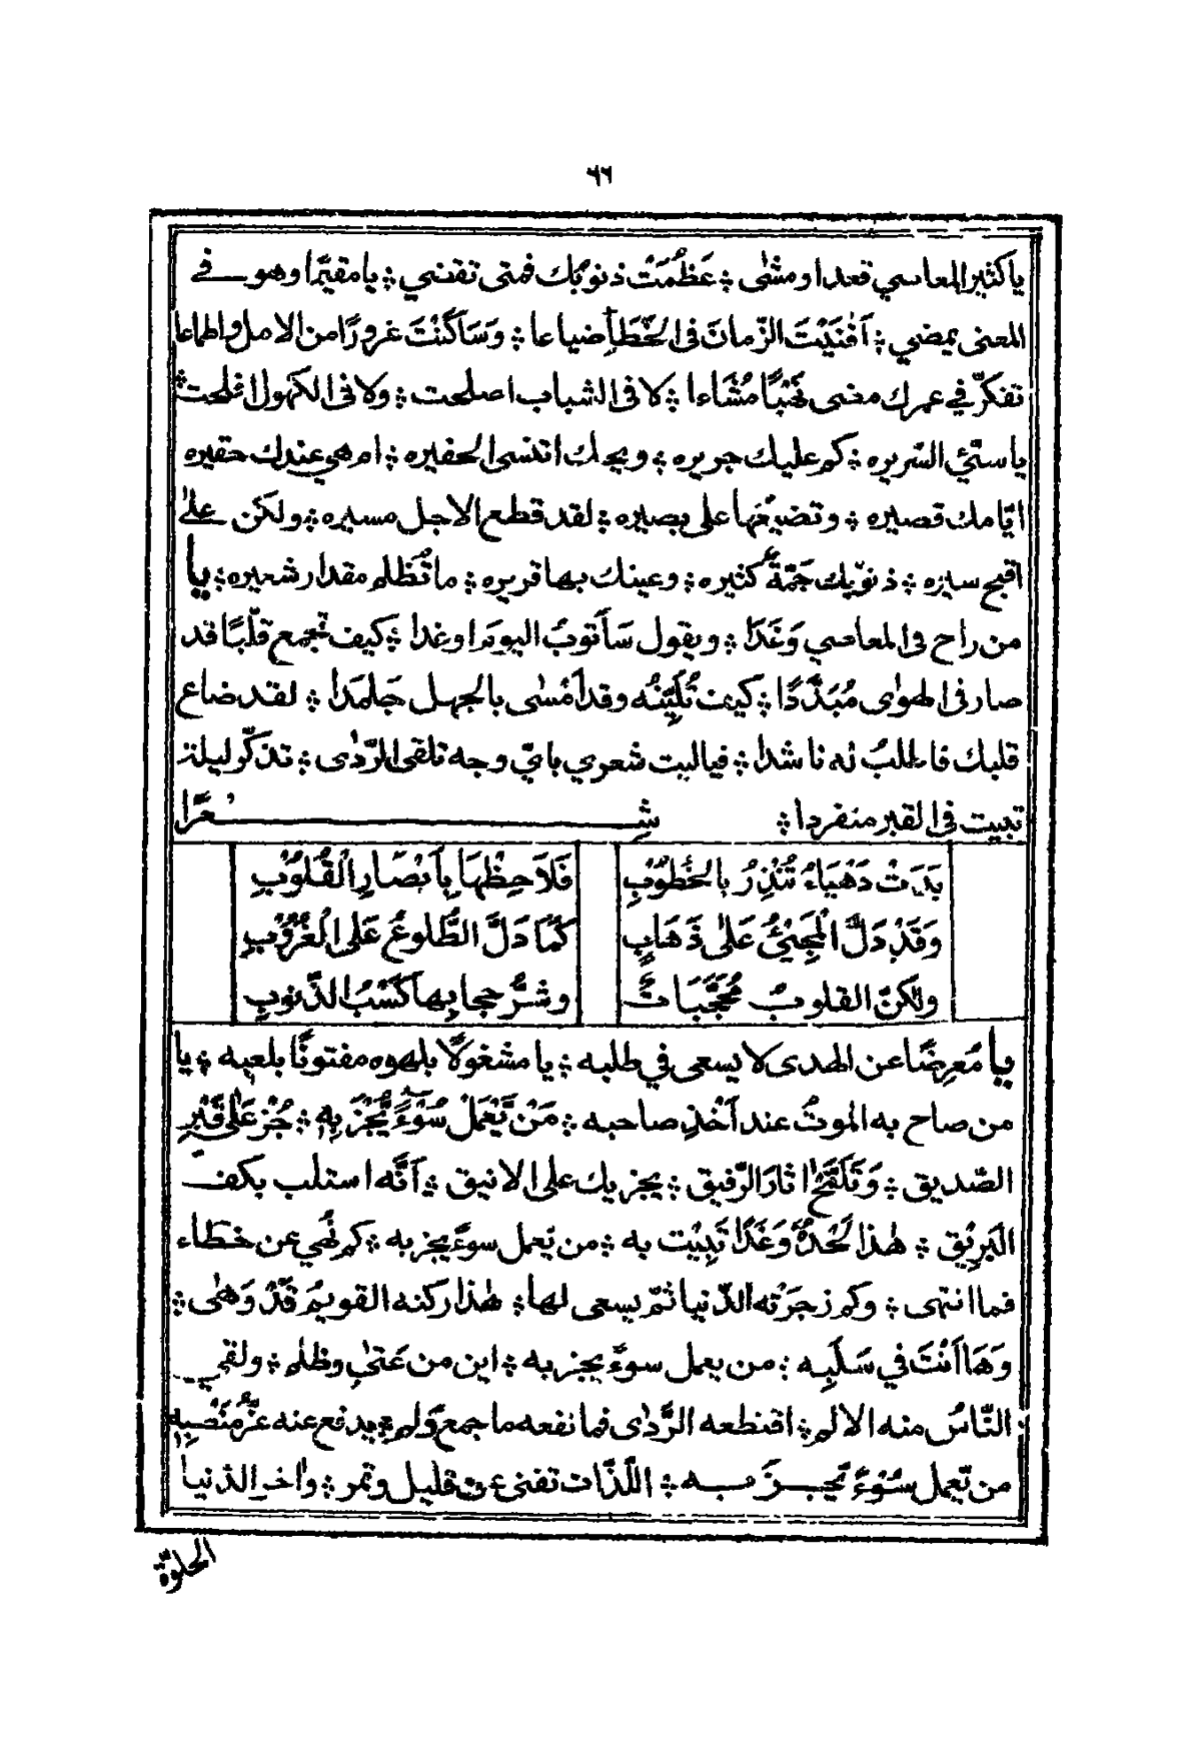 ٦٦
يا كثير المعاصي قعدا ومشٰى ؞ عَظُمَتْ ذنوبُك فمتى تقضي ؞ يا مقيمًا وهو في
المعنى يمضي ؞ اَفْنَيْتَ الزّمانَ فى الخَطَأِ ضياعا ؞ وَسَاكَنْتَ غرورًا من الامل واطماعا
تفكّر في عمرك مضى نَهْبًا مُشَاعا ؞ لا فى الشباب اصلحت ؞ ولا فى الكهول افلحت ؞
يا سيّئ السّريره ؞ كم عليك جريره ؞ ويحك اتنسى الحفيره ؞ ام هي عندك حقيره
ايّامك قصيره ؞ وتضيّعها على بصيره ؞ لقد قطع الاجل مسيره ؞ ولكن علٰى
اقبح سيره ؞ ذنوبك جَمّةٌ كثيره ؞ وعينك بها قريره ؞ ما تُظلم مقدار شعيره ؞ يا
من راح فى المعاصي وَغَدَا ؞ ويقول سَأَتوبُ اليومَ او غدا ؞ كيف تجمع قلبًا قد
صار فى الهوٰى مُبَدَّدًا ؞ كيف تُلَيِّنُه وقد اَمْسٰى بالجهل جَلمَدا ؞ لقد ضاع
قلبك فاطلبُ له ناشدا ؞ فيا ليت شعري بايّ وجه تلقى الرّدٰى ؞ تذكّر ليلة
تبيت فى القبر منفردا ؞ شِعْرًا
بَدَتْ دَهْيَاءُ تُنْذِرُ بالخُطُوْبِ فَلَاحِظْهَا بِاَبْصَارِ الْقُلُوْبِ
وَقَدْ دَلَّ الْمَجِيْئُ عَلٰى ذَهَابٍ كَمَا دَلَّ الطُّلوعُ عَلى الْغُرُوْبِ
ولكنّ القلوبَ مُحَجَّبَاتٌ وشرُّ حجابِها كَسْبُ الذّنوبِ
يا مُعرِضًا عن الهدى لا يسعى في طلبه ؞ يا مشغولًا بلهوه مفتونًا بلعبه ؞ يا
من صاح به الموتُ عند اَخْذِ صاحبه ؞ مَنْ يَّعْمَلْ سُوْٓءً يُّجْزَ بِهٖ ؞ جُزْ عَلٰى قَبْرِ
الصّديق ؞ وَتَلَمَّحْ اٰثارَ الرّفيق ؞ يخبريك على الانيق ؞ اَنّه استلب بكف
البَرِيْق ؞ هٰذا لَحْدُهٗ وَغَدًا تَبِيْت به ؞ من يّعمل سوءً يجز به ؞ كم نُهي عن خطاء
فما انتهى ؞ وكم زجرَتْه الدّنيا ثمّ يسعى لها ؞ هٰذا ركنه القويمُ قَدْ وَهٰى ؞
وَهَا اَنْتَ في سَلَبِه ؞ من يعمل سوءً يجز به ؞ اين من عَتٰى وظلم ؞ ولقي
النّاسُ منه الالم ؞ اقتطعه الرَّدٰى فما نفعه ما جمعَ ولم يدفع عنه عزُّ مَنْصِبِهٖ
من يّعمل سُوْءً يُجْزَ به ؞ اللّذّات تفنى عن قليل وتمر ؞ واٰخر الدّنيا
الحلوة